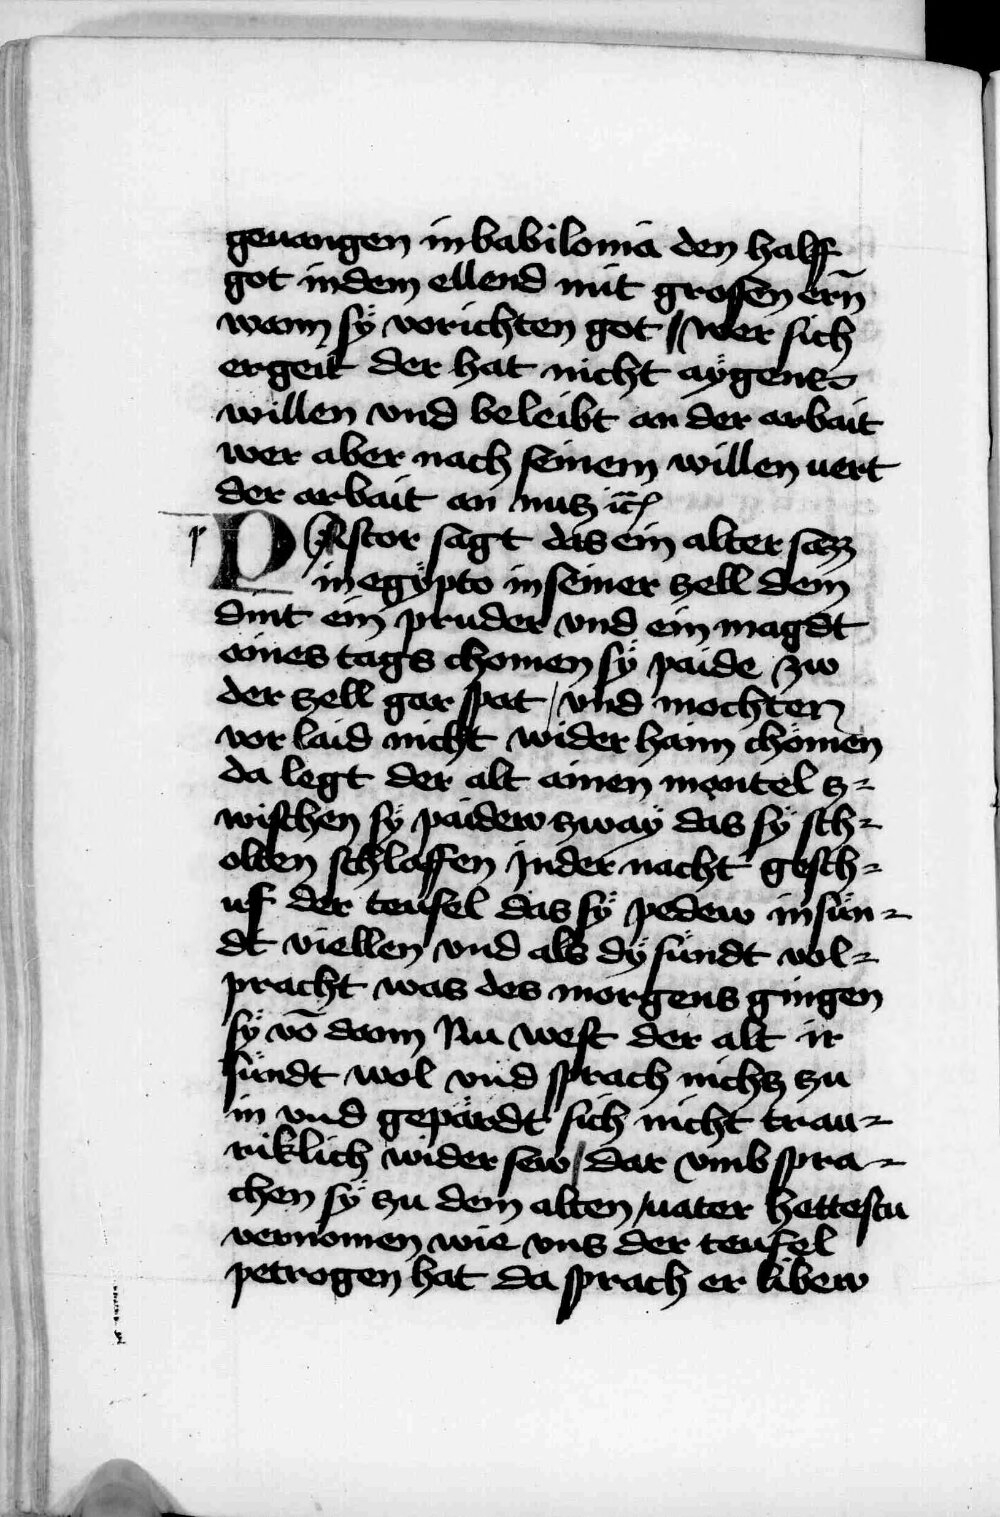 geuangen in babilonia den halff
got in dem ellend mit grossen ern̄
wann sÿ vorichten got // wer sich
ergeit der hat nicht aÿgens
willen vnd beleibt an der arbait
wer aber nach seinem willen uert
der arbait an nutz ꝛc̄
PAstor sagt das ein alter sazz
in egÿpto in seiner zell dem
dint ein pruder vnd ein magdt
aines tags chomen sÿ paide zw
der zell gar spat / vnd mochten
vor laid nicht wider haim chömen
da legt der alt ainen mantel z=
wischen sÿ paidew zwaÿ das sÿ sch=
olten schlaffen Jn der nacht gesch=
uf der teufel das sÿ pedew in sün=
dt viellen vnd als dÿ sündt vol=
pracht was des morgens gingen
sÿ vō dann Nu west der alt ir
sündt wol vnd sprach nichtz zu
in vnd gepärdt sich nicht trau=
riklich wider sew / dar vmb spra=
chen sÿ zu dem alten / uater hettestu
vernomen wie vns der teufel
petrogen hat da sprach er libew